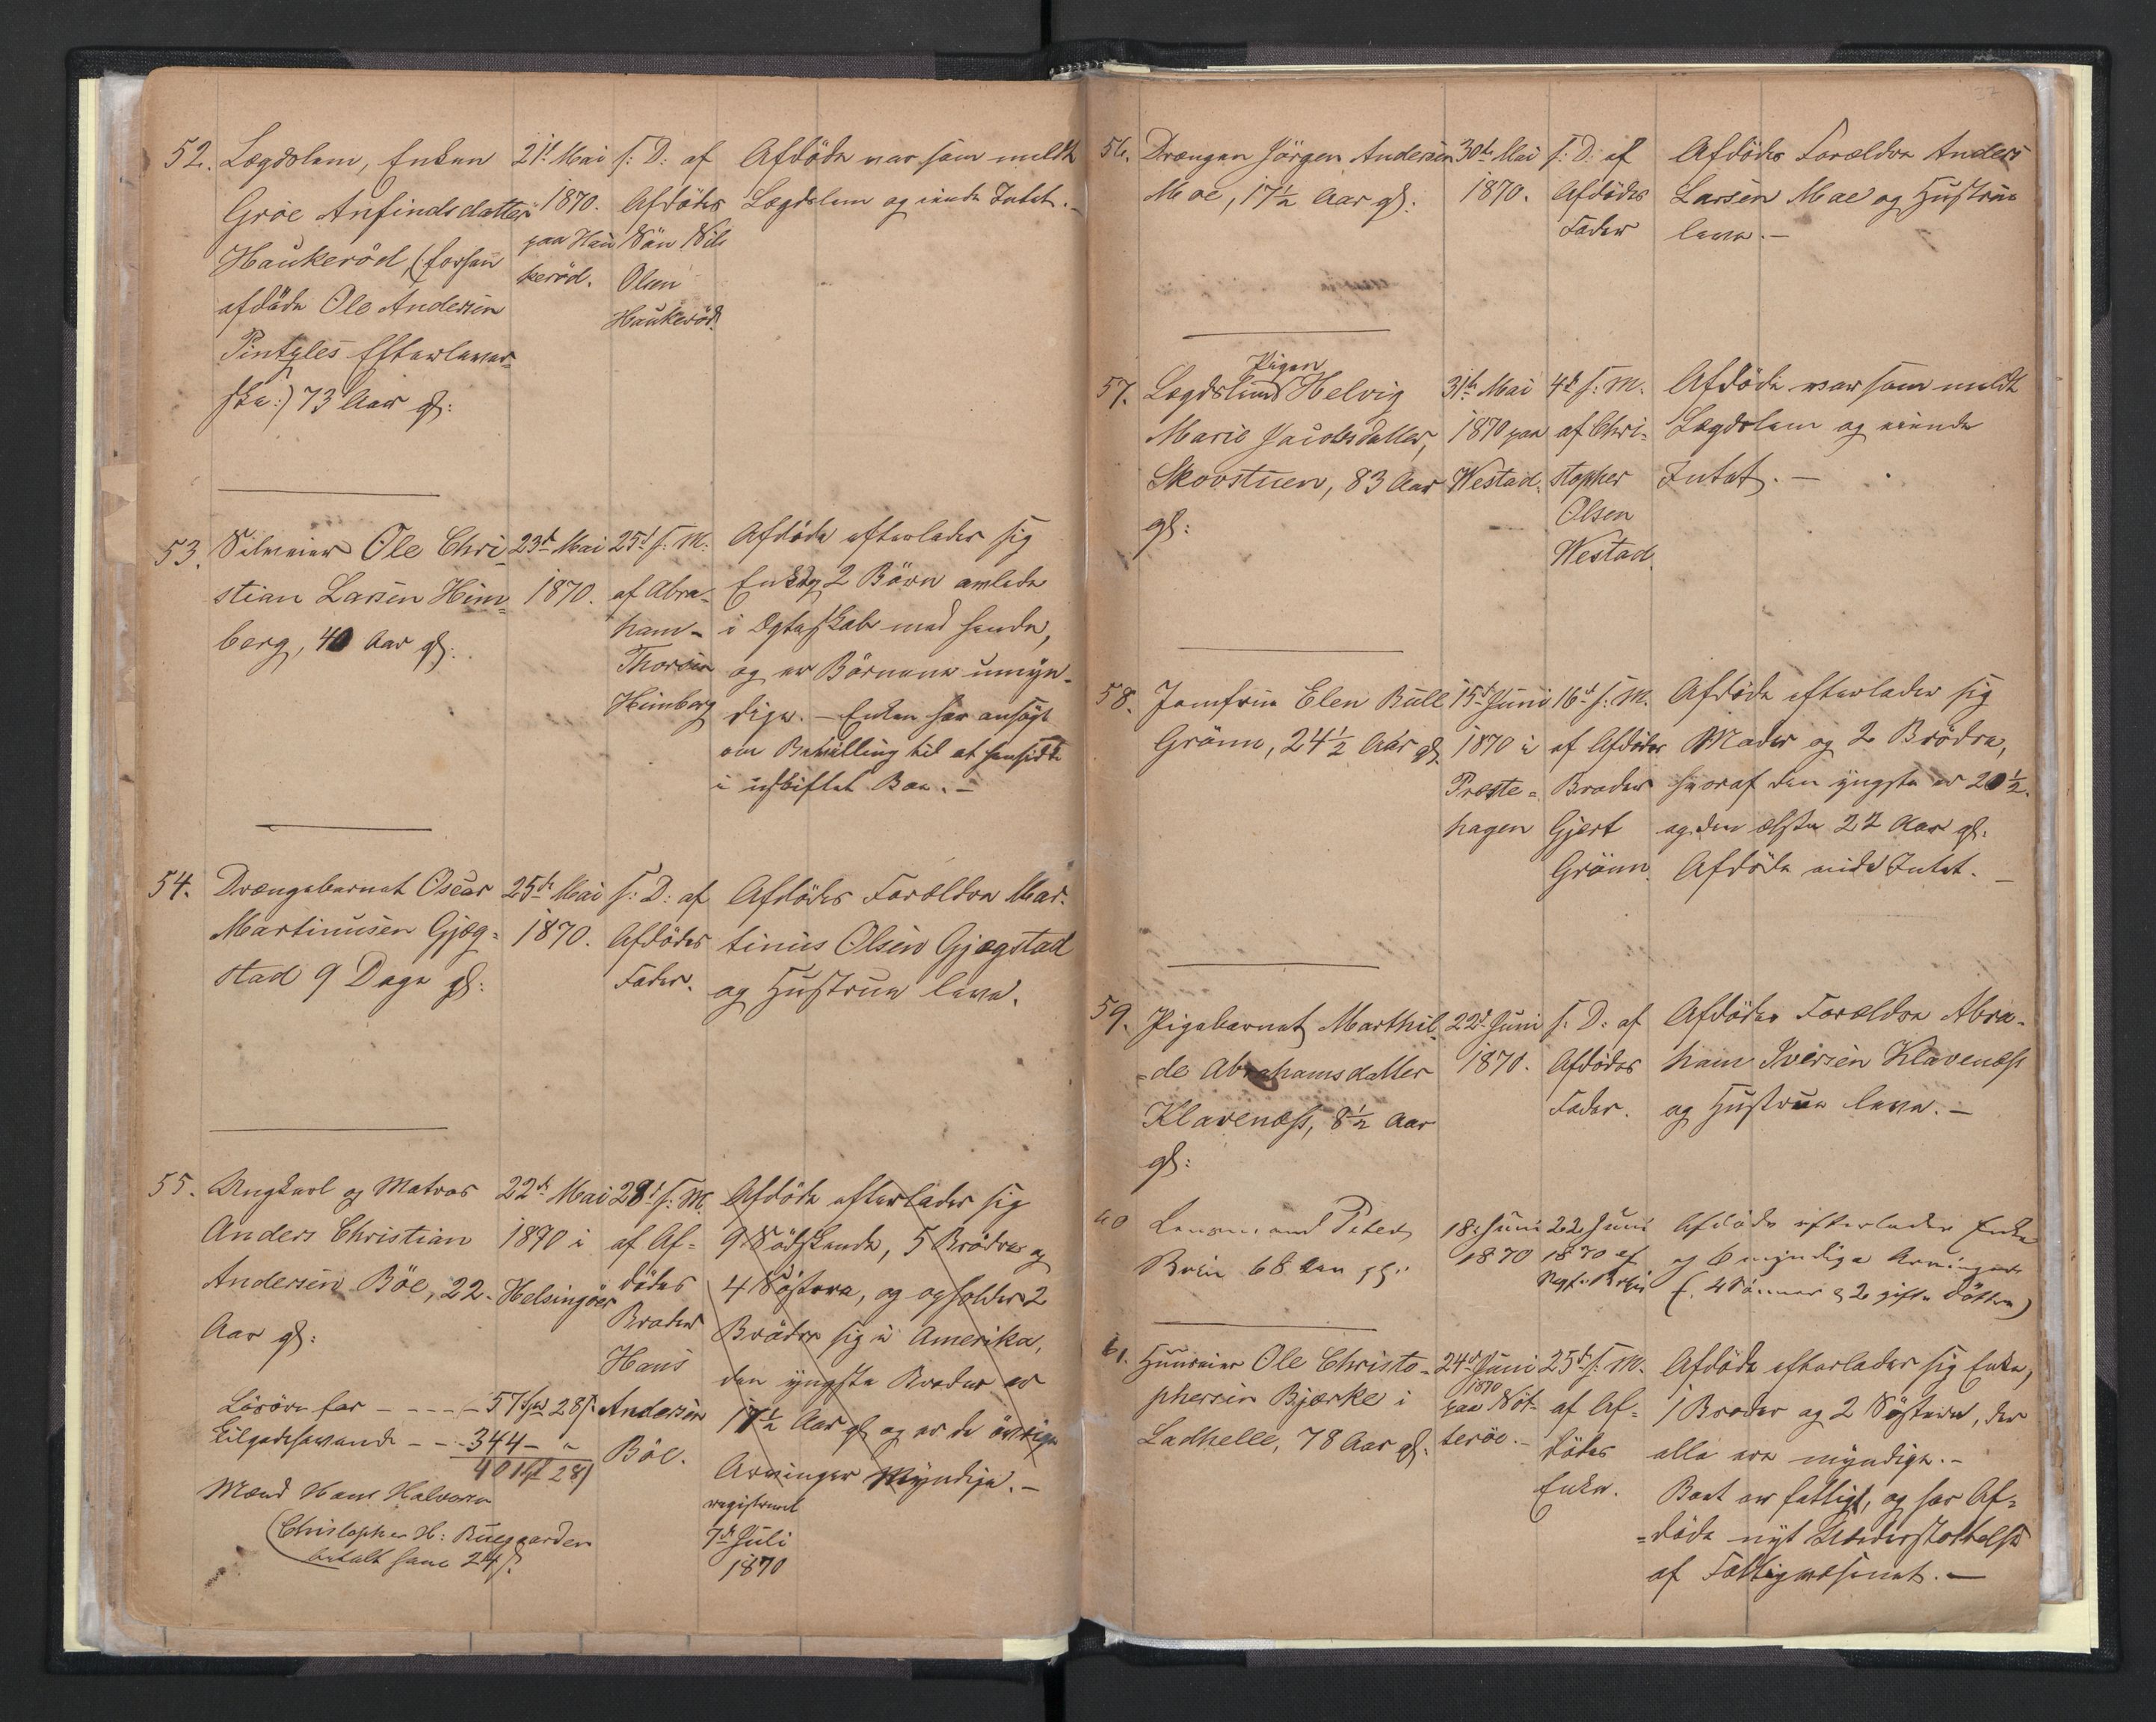 52. Lægdslem, Enken
Groe Anfindsdatter
Haukeröd, (: forhen
afdöde Ole Andersen
Pintyles Efterlever-
ske :) 73 Aar gl:
21d Mai
1870.
paa Hau-
keröd.
s: D: af
Afdödes
Sön Nils
Olsen
Haukeröd.
Afdöde var som meldt
Lægdslem og eiede Intet. -
53. Selveier Ole Chri-
stian Larsen Him-
berg, 40 Aar gl:
23d Mai
1870.
25d s: M:
af Abra-
ham
Thorsen
Himberg
Afdöde efterlader sig
Enke og 2 Börn avlede
i Egteskab med hende,
og er Börnene umyn-
dige. - Enken har ansögt
om Bevilling til at hensidde
i uskiftet Boe. -
54. Drengebarnet Oscar
Martinusen Gjæg-
stad 9 Dage gl:
25de Mai
1870.
s: D: af
Afdödes
Fader.
Afdödes Forældre Mar-
tinus Olsen Gjægstad
og Hustrue leve.
55. Ungkarl og Matros
Anders Christian
Andersen Böe, 22
Aar gl:
22de Mai
1870 i
Helsingöer
28d s: M.
af Af-
dödes
Broder
Hans
Andersen
Böe.
Afdöde efterlader sig
9 Södskende, 5 Brödre og
4 Söstere, og opholder 2
Brödre sig i Amerika,
den yngste Broder er
17½ Aar gl og er de övrige
Arvinger Myndige. -
registreret
7de Juli
1870
Lösöre for - - - - 57 Spd 28 s.
Tilgodehavende - - - 344 - "
401 Spd 28 s
Mænd Hans Halvorsen
(Christopher H: Ruegaarden
betalt ham 24 s.
56. Drengen Jörgen Andersen
Moe, 17½ Aar gl:
30te Mai
1870.
s: D: af
Afdödes
Fader
Afdödes Forældre Anders
Larsen Moe og Hustrue
leve. -
57. Lægdslem Pigen Helvig
Marie Jacobsdatter,
Skovstuen, 83 Aar
gl:
31te Mai
1870 paa
Westad.
4d s: M.
af Chri-
stopher
Olsen
Westad.
Afdöde var som meldt
Lægdslem og eiede
Intet. -
58. Jomfrue Elen Bull
Grönn, 24½ Aar gl.
15de Juni
1870 i
Preste-
hagen
16d s: M.
af Afdödes
Broder
Gjert
Grönn.
Afdöde efterlader sig
Moder og 2 Brödre,
hvoraf den yngste er 20½
og den ælste 27 Aar gl:
Afdöde eide Intet. -
59. Pigebarnet Marthil-
de Abrahamsdatter
Klavenæss, 8½ Aar
gl:
22d Juni
1870.
s: D: af
Afdödes
Fader.
Afdödes Forældre Abra-
ham Iversen Klavenæss
og Hustrue leve. -
60 Lensmand Peter
Brein 68 Aar gl:
18. Juni
1870
22 Juni
1870 af
Afdöde efterlader Enke
og 6 myndige Arvinger
(: 4 Sönner & 2 gifte Döttre)
61. Huuseier Ole Christo-
phersen Bjerke i
Ladhelle, 78 Aar gl.
24de Juni
1870
paa Nöt-
teröe. -
25d s: M.
af Af-
dödes
Enke.
Afdöde efterlader sig Enke,
1 Broder og 2 Söstere, der
alle ere myndige. -
Boet er fattigt, og har Af-
döde nydt Understöttelse
af Fattigvæsenet. -